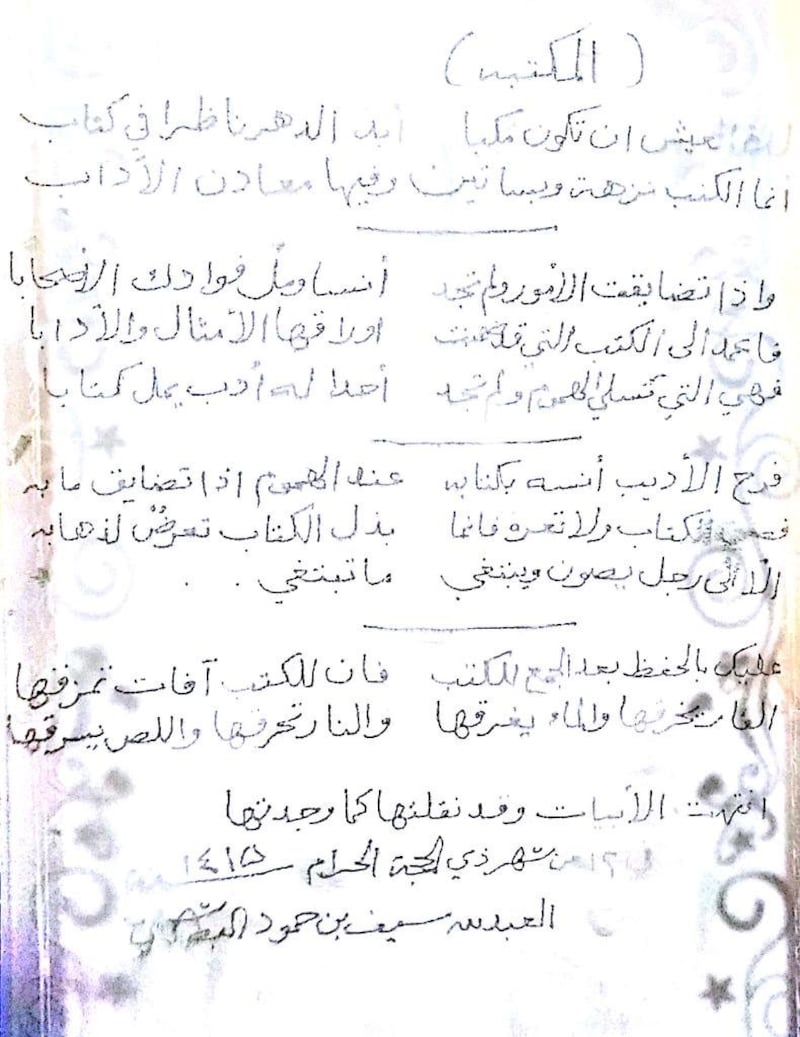 ( المكتبه )
لذة العيش ان تكون مكبا    أبد الدهر ناظرا في كتاب
انما الكتب نزهة وبساتين وفيها معادن الآداب
واذا تضايقت الأمور ولم تجد    أنسا وملّ فوادك الأصحابا
فاعمد الى الكتب التي قد ضمنت    اوراقها الأمثال والأدابا
فهي التي تسلي الهموم ولم تجد    أحدا له أدب يمل كتابا
فرح الأديب أنسه بكتابه    عند الهموم اذا تضايق ما به
الكتاب ولا تعره فانما    بذل الكتاب تعرضٌ لذهابه
الّا الى رجل يصون ويبتغي    ما تبتغي . .
عليك بالحفظ بعد الجمع للكتب    فان للكتب آفات تمزقها
الفار يخرقها والماء يغرقها    والنار تحرقها واللص يسرقها
انتهت الأبيات وقد نقلتها كما وجدتها
من شهر ذي الحجة الحرام ١٤١٥
العبد لله سيف بن حمود